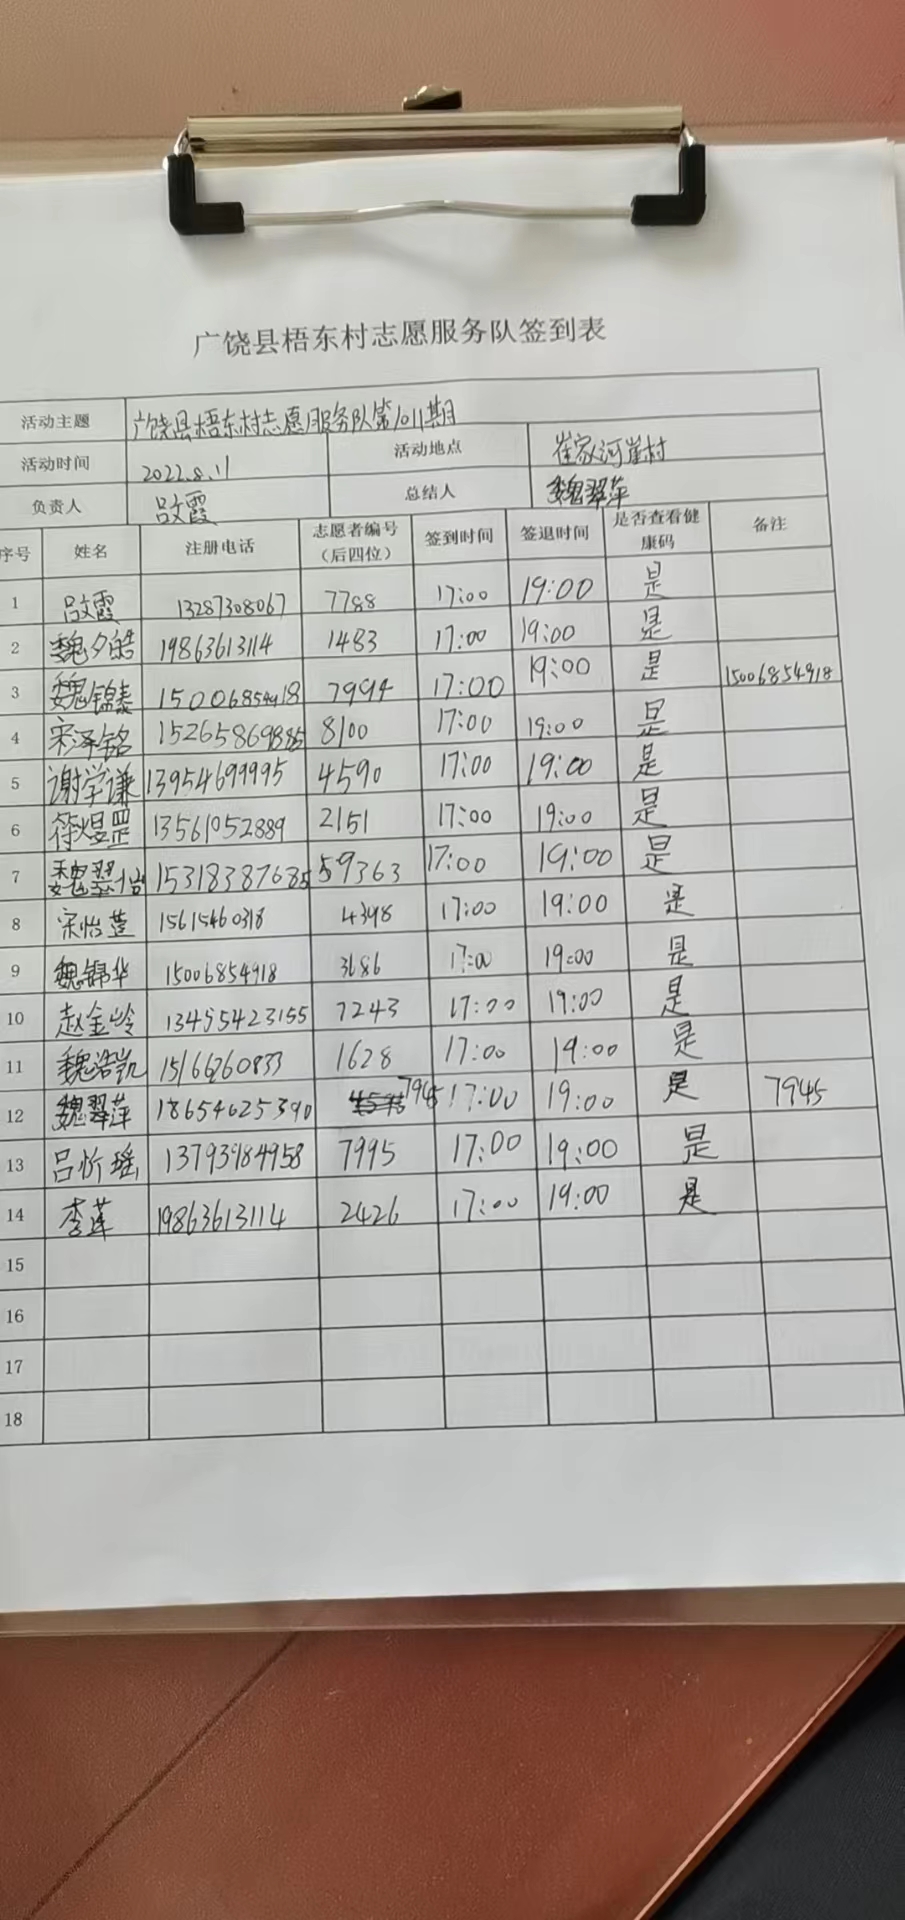 广饶县梧东村志愿服务队签到表
活动主题 广饶县梧东村志愿服务队第1011期
活动时间 2022.8.11 活动地点 崔家河崖村
负责人 吕霞 总结人 魏翠萍
序号 姓名 注册电话 志愿者编号（后四位） 签到时间 签退时间 是否查看健康码 备注
1 吕霞 13287308067 7788 17:00 19:00 是
2 魏夕皓 19863613114 1483 17:00 19:00 是
3 魏锦泰 15006854918 7994 17:00 19:00 是 15006854918
4 宋泽铭 15265869885 8100 17:00 19:00 是
5 谢学谦 13954699995 4590 17:00 19:00 是
6 13561052889 2151 17:00 19:00 是
7 魏翠 15318387685 59363 17:00 19:00 是
8 宋怡莲 15615460318 4398 17:00 19:00 是
9 魏锦华 15006854918 3686 17:00 19:00 是
10 赵金岭 13455423155 7243 17:00 19:00 是
11 魏浩凯 15166260833 1628 17:00 19:00 是
12 魏翠萍 18654625390 7945 17:00 19:00 是 7945
13 吕忻瑶 13793984958 7995 17:00 19:00 是
14 李莲 19863613114 2426 17:00 19:00 是
15
16
17
18